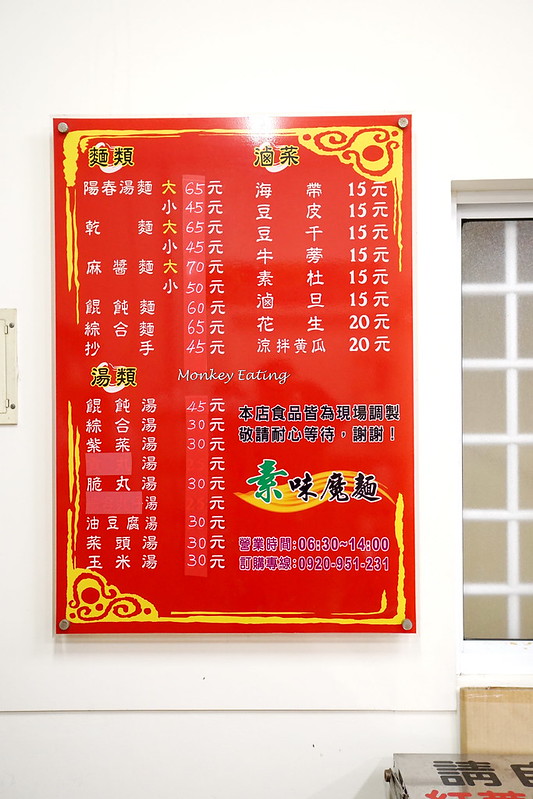 麵類
陽春湯麵 大 65元
小 45元
乾麵 大 65元
小 45元
麻醬麵 大 70元
小 50元
餛飩麵 60元
綜合麵 65元
抄手 45元
湯類
餛飩湯 45元
綜合湯 30元
紫菜湯 30元
湯 元
脆丸湯 30元
湯 元
油豆腐湯 30元
菜頭湯 30元
玉米湯 30元
滷菜
海帶 15元
豆皮 15元
豆干 15元
牛蒡 15元
素杜 15元
滷旦 15元
花生 20元
涼拌黃瓜 20元
Monkey Eating
本店食品皆為現場調製
敬請耐心等待，謝謝！
素味魔麵
營業時間:06:30~14:00
訂購專線:0920-951-231
請自